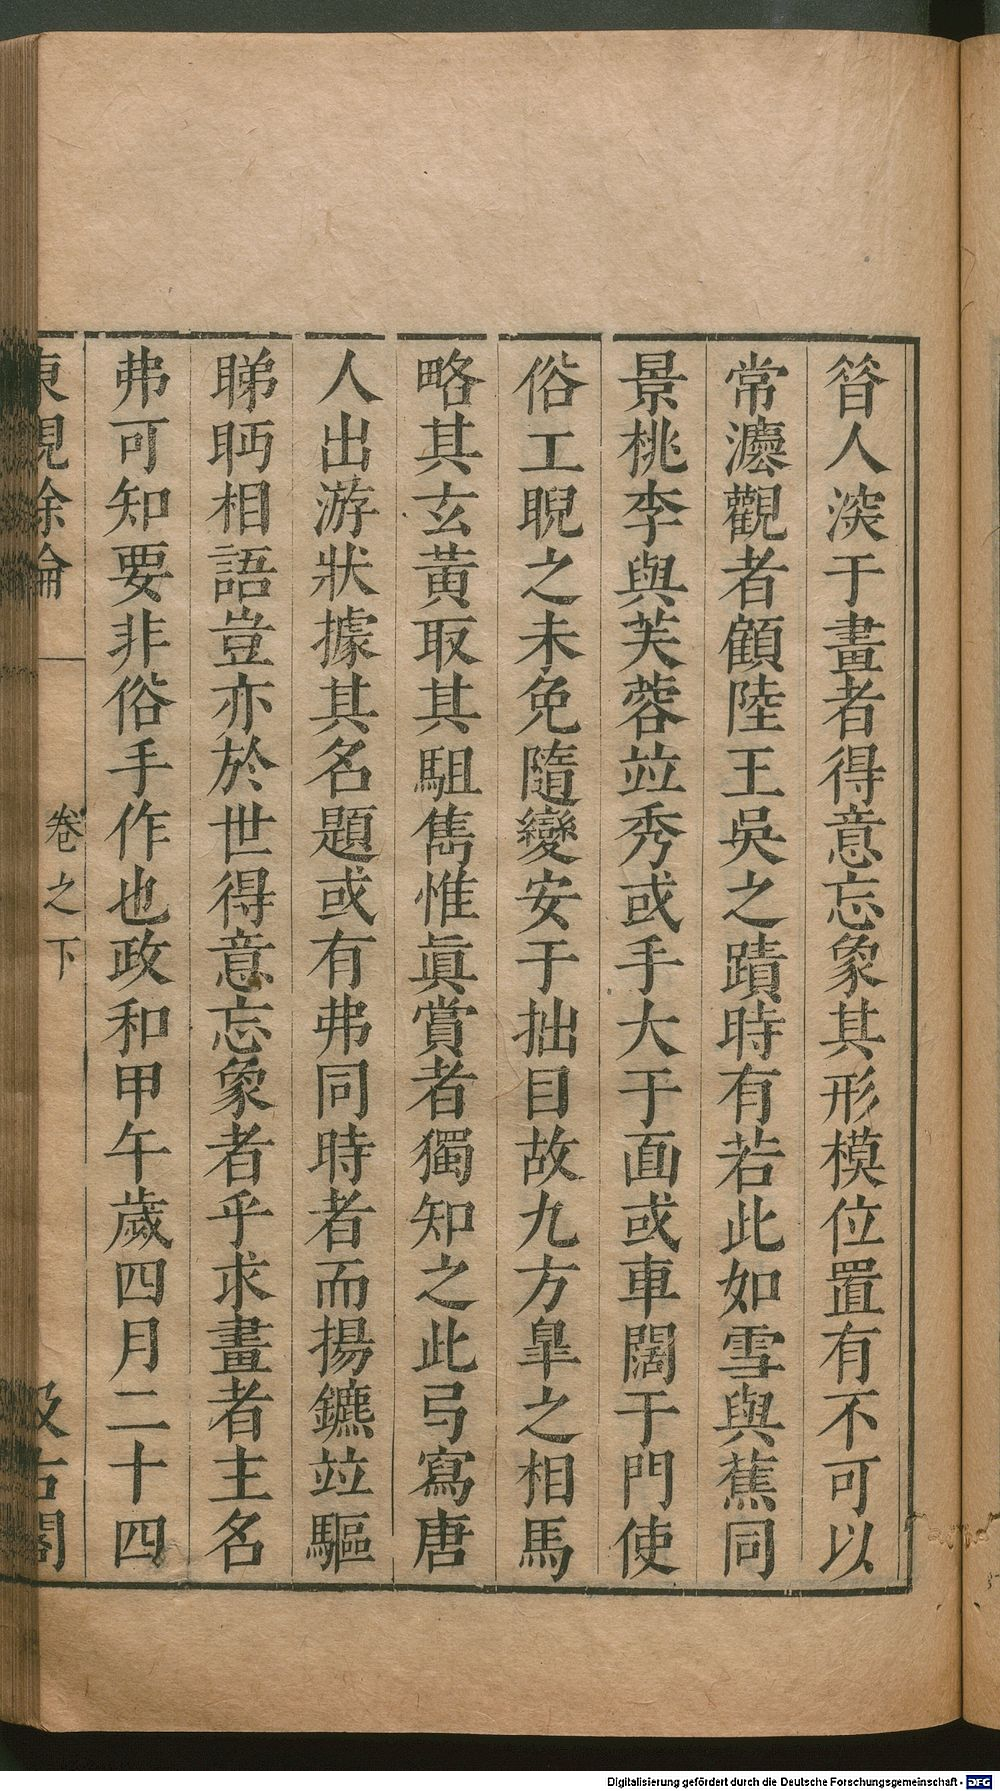 昝人深于畫者得意忘象其形模位置有不可以
常灋觀者顧陸王吳之蹟時有若此如雪與蕉同
景桃李與芙蓉竝秀或手大于面或車闊于門使
俗工睨之未免隨變安于拙目故九方臯之相馬
略其玄黃取其駔雋惟眞賞者獨知之此弓寫唐
人出游狀據其名題或有弗同時者而揚鑣竝驅
睇眄相語豈亦於世得意忘象者乎求畫者主名
弗可知要非俗手作也政和甲午歲四月二十四
東觀餘論 卷之下 汲古閣
Digitalisierung gefördert durch die Deutsche Forschungsgemeinschaft - DFG